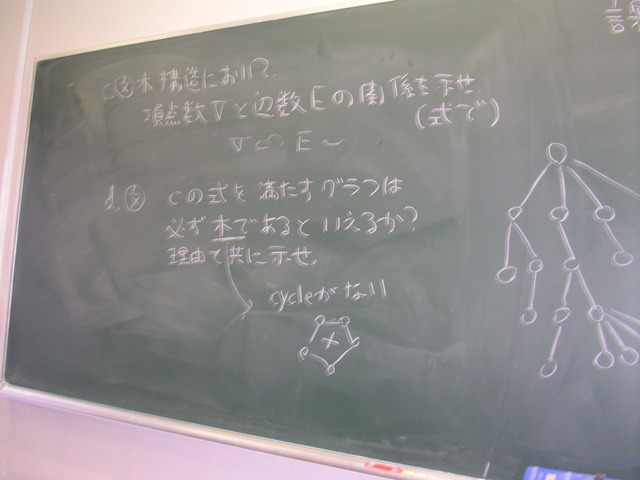 c. 図 木構造において、
頂点数Vと辺数Eの関係を示せ
(式で)
V E ~
d. 図 cの式を満たすグラフは
必ず木であるといえるか?
理由と共に示せ。
cycleがない
x
言